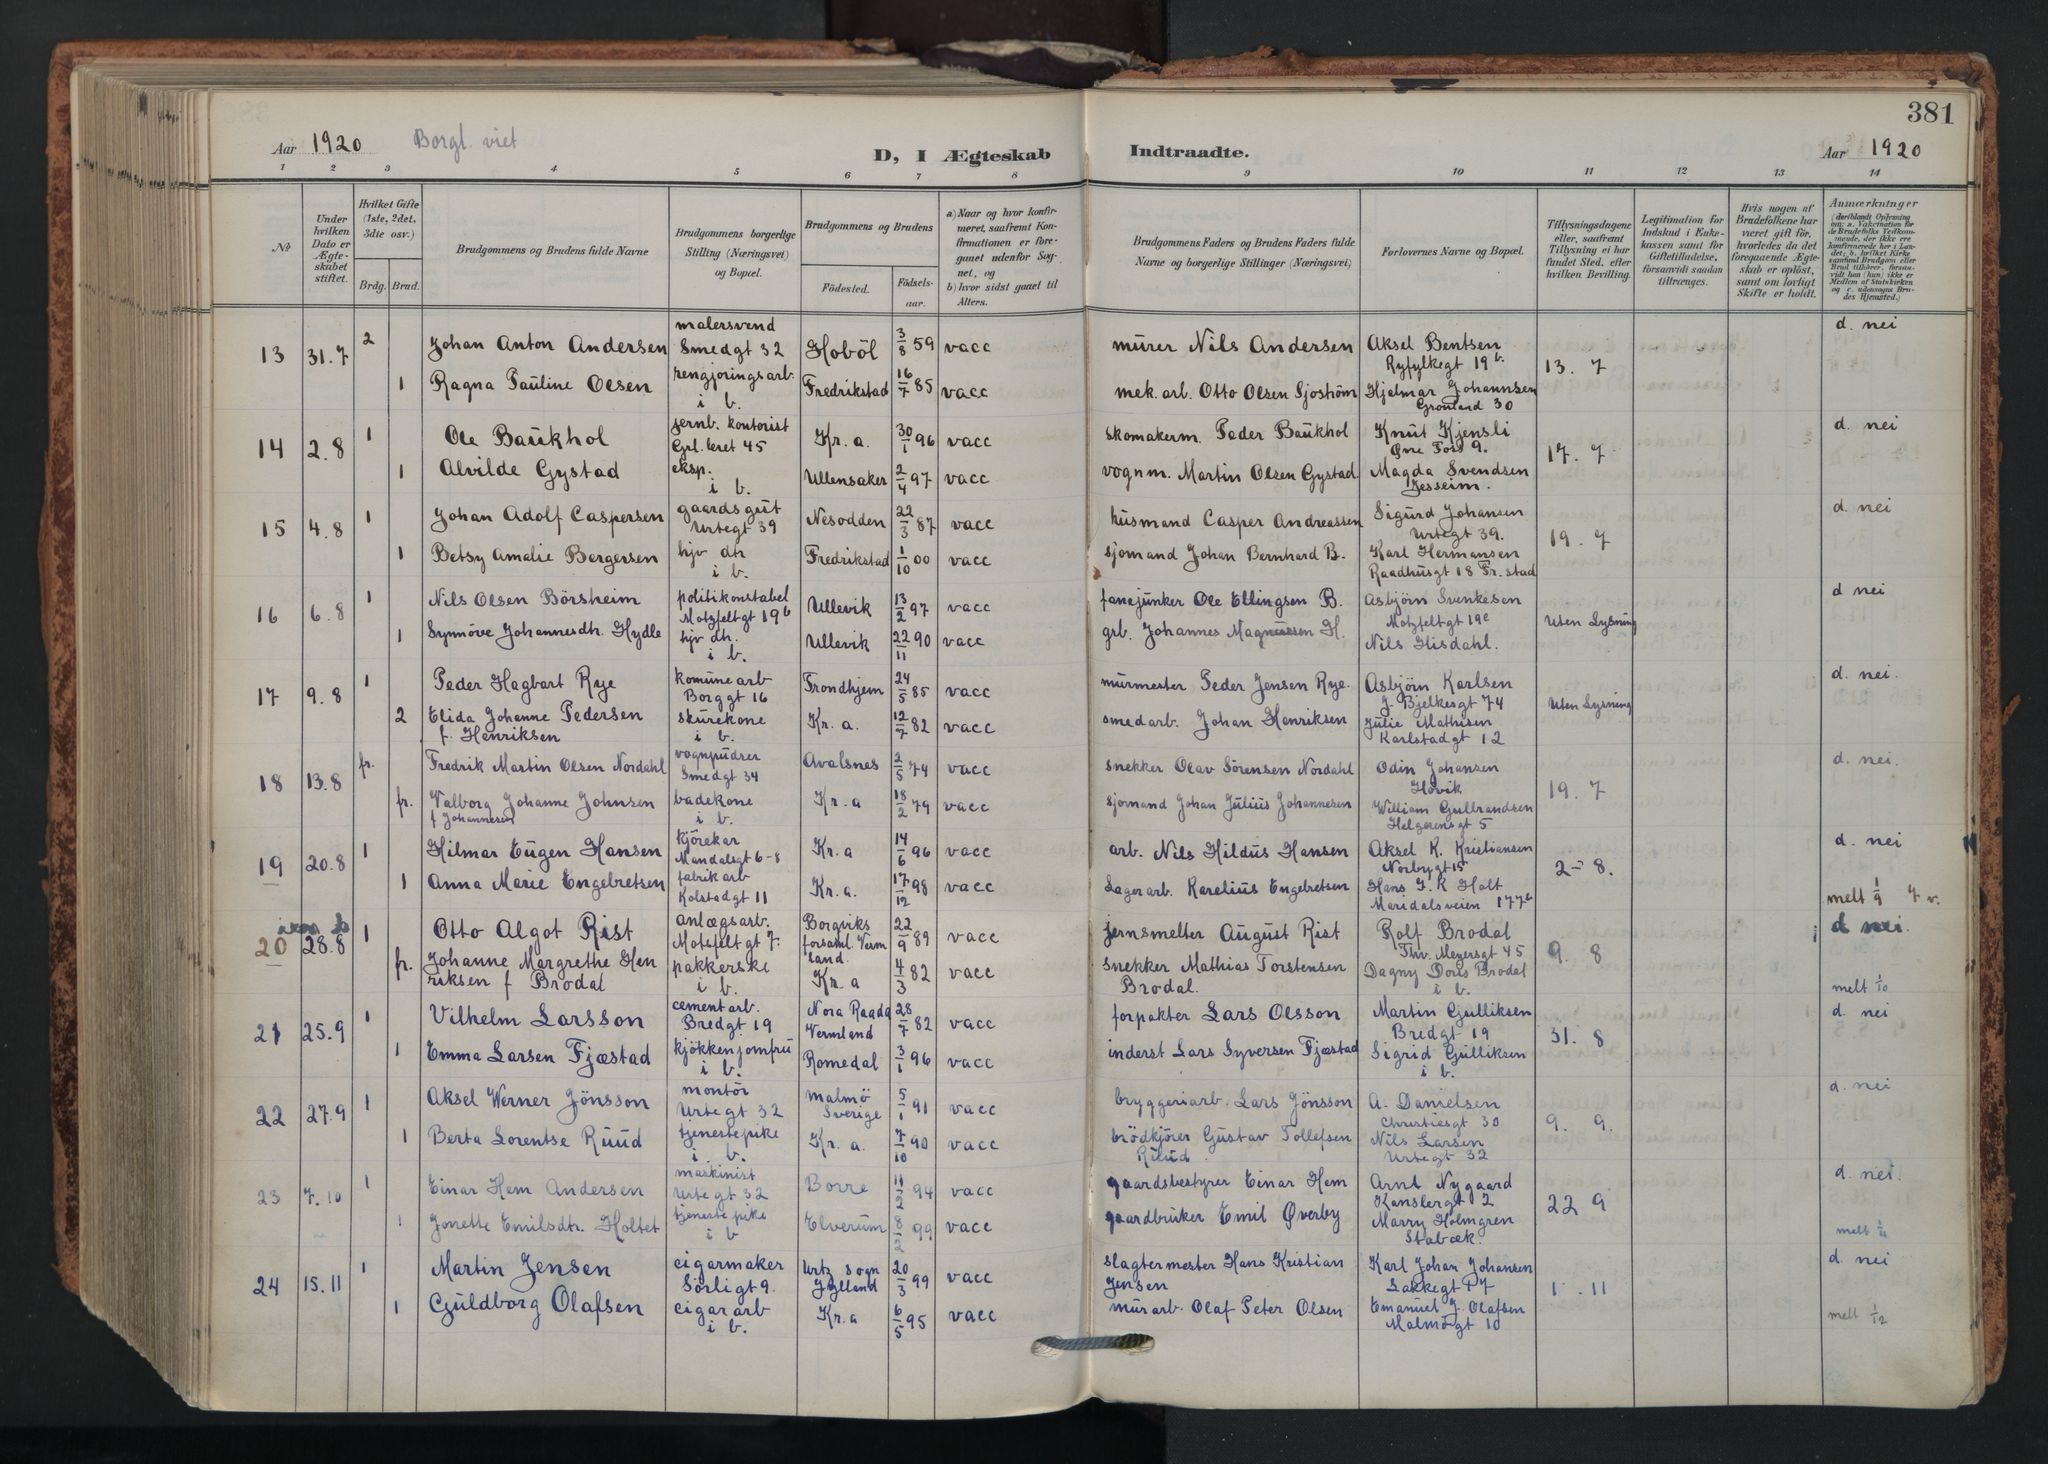 381
Aar 1920 Borgl. viet D, I Ægteskab Indtraadte. Aar 1920
1 2 3 4 5 6 7 8 9 10 11 12 13 14
No
Under hvilken Dato er Ægteskabet stiftet.
Hvilket Gifte (1ste, 2det, 3die osv.)
Brdg. Brud.
Brudgommens og Brudens fulde Navne
Brudgommens borgerlige Stilling (Næringsvei) og Bopæl.
Brudgommens og Brudens
Fødested. Fødselsaar.
a) Naar og hvor konfirmeret, saafremt Konfirmationen er foregaaet udenfor Sognet, og
b) hvor sidst gaaet til Alters.
Brudgommens Faders og Brudens Faders fulde Navne og borgerlige Stillinger (Næringsvei)
Forlovernes Navne og Bopæl.
Tillysningsdagene eller, saafremt Tillysning ei har fundet Sted, efter hvilken Bevilling.
Legitimation for Indskud i Enkekassen samt for Giftetilladelse, forsaavidt saadan tiltrænges.
Hvis nogen af Brudefolkene har været gift før, hvorledes da det foregaaende Ægteskab er opløst, samt om lovligt Skifte er holdt.
Anmærkninger
13 31.7 2 Johan Anton Andersen malersvend Smedgt 32 Hoböl 3/8 59 vacc murer Nils Andersen Aksel Bentsen Ryfylkegt 19b 13. 7 d. nei
1 Ragna Pauline Olsen rengjøringsarb. i b. Fredrikstad 16/7 85 vacc mek. arb. Otto Olsen Sjøstrøm Hjalmar Johannsen Grønland 30
14 2.8 1 Ole Baukhol jernb. kontorist Grl. leret 45 Kr. a. 30/1 96 vacc skomakerm. Peder Baukhol Knut Kjensli Øvre Foss 9. 17. 7 d. nei
1 Alvilde Gystad eksp. i b. Ullensaker 2/4 97 vacc vognm. Martin Olsen Gystad. Magda Svendsen Jesseim.
15 4.8 1 Johan Adolf Caspersen gaardsgut Urtegt 39 Nesodden 22/3 87 vacc husmand Casper Andreassen Sigurd Johansen Urtegt 39. 19. 7 d. nei
1 Betsy Amalie Bergersen hjv dtr i b. Fredrikstad 1/10 00 vacc sjømand Johan Bernhard B. Karl Hermansen Raadhusgt 18 Fr. stad
16 6.8 1 Nils Olsen Börsheim politikonstabel Motzfeltgt 19b Ullevik 13/2 97 vacc fanejunker Ole Ellingsen B. Asbjörn Svenkesen Motzfeltgt 19e Uten Lysning d nei
1 Synnöve Johannesdh. Hydle hjv dh. i b. Ullevik 22/11 90 vacc grb. Johannes Magnussen H. Nils Hisdahl.
17 9.8 1 Peder Hagbart Rye komunearb Borggt 16 Trondhjem 24/5 85 vacc murmester Peder Jensen Rye. Asbjörn Karlsen J. Bjelkesgt 74 Uten Lysning d. nei.
2 Elida Johanne Pedersen f. Henriksen skurekone i b. Kr. a. 12/7 82 vacc smedarb. Johan Henriksen Julie Mathisen Karlstadgt 12
18 13.8 fr. Fredrik Martin Olsen Nordahl vognpudser Smedgt 34 Avalsnes 2/5 74 vacc snekker Olav Sörensen Nordahl Odin Johansen Hövik 19. 7 d. nei.
fr. Valborg Johanne Johnsen f Johannesen badekone i b. Kr. a 18/2 79 vacc sjømand Johan Julius Johannesen William Gulbrandsen Helgesensgt 5
19 20.8 1 Hilmar Eugen Hansen kjörekar Mandalsgt 6-8 Kr. a 14/6 96 vacc arb. Nils Hildus Hansen Aksel K. Kristiansen Norbygt 15 2-8. d. nei
1 Anna Marie Engebretsen fabrikarb Kolstadgt 11 Kr. a. 17/12 98 vacc Lagerarb. Karelius Engebretsen Hans J. R Holt Maridalsveien 177b melt 1/9
20 28.8 1 Otto Algot Rist anlægsarb. Motsfeltgt 7. Borgviks forsaml. Vermland. 22/9 89 vacc jernsmelter August Rist Rolf Brodal Thv. Meyersgt 45 9. 8 d nei.
fr. Johanne Margrethe Henriksen f Brodal pakkerske i b. Kr. a 4/3 82 vacc snekker Mathias Torstensen Brodal. Dagny Doris Brodal i b. melt 1/10
21 25.9 1 Vilhelm Larsson cementarb. Bredgt 19 Nora Raada Vermland 28/7 82 vacc forpakter Lars Olsson Martin Gulliksen Bredgt 19 31. 8 d. nei
1 Emma Larsen Fjæstad kjökkenjomfru i b. Romedal 3/1 96 vacc inderst Lars Syversen Fjæstad Sigrid Gulliksen i b.
22 27.9 1 Aksel Werner Jönsson montör Urtegt 32 Malmö Sverige 5/1 91 vacc bryggeriarb. Lars Jönsson A. Danielsen Christiesgt 30 9. 9. d. nei
1 Berta Lorentse Ruud tjenestepike i. b. Kr. a. 7/10 90 vacc brödkjörer Gustav Tollefsen Ruud Nils Larsen Urtegt 32
23 7.10 1 Einar Hem Andersen maskinist Urtegt 32 Borre 11/2 94 vacc gaardsbestyrer Einar Hem Arnt Nygaard Kanslergt 2 22 9 d. nei.
1 Jonette Emilsdtr. Holtet tjenestepike i b Elverum 8/2 99 vacc gaardbruker Emil Øverby Marry Holmgren Stabæk. melt 1/11
24 15.11 1 Martin Jensen cigarmaker Sörligt 9. Urtz sogn Jylland 20/3 99 vacc slagtermester Hans Kristian Jensen Karl Johan Johansen Lakkegt 17 1. 11 d. nei
1 Guldborg Olafsen cigararb i b. Kr. a 6/5 95 vacc murarb. Olaf Peter Olsen Emanuel J. Olafsen Malmögt 10 melt 1/12